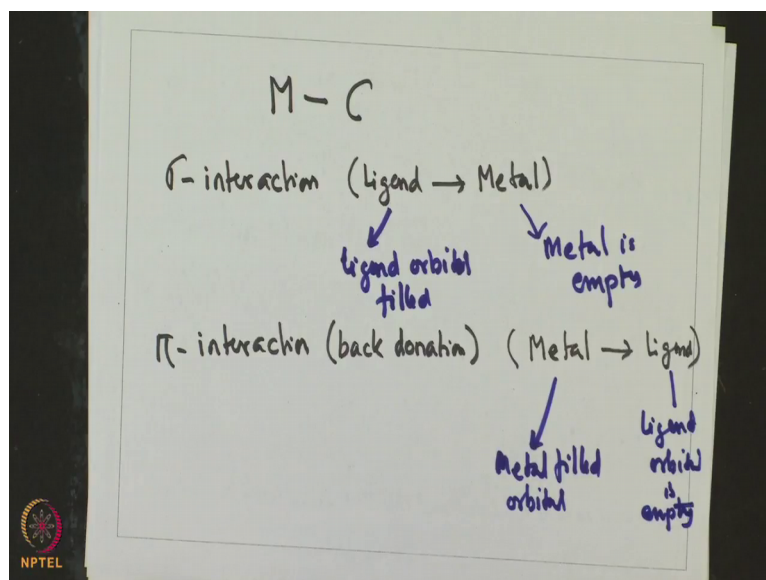 M – C
σ-interaction (Ligand → Metal)
Ligand orbital
filled
Metal is
empty
π-interactin (back donation) (Metal → Ligand)
Metal filled
orbital
Ligand
orbital
is
empty
NPTEL